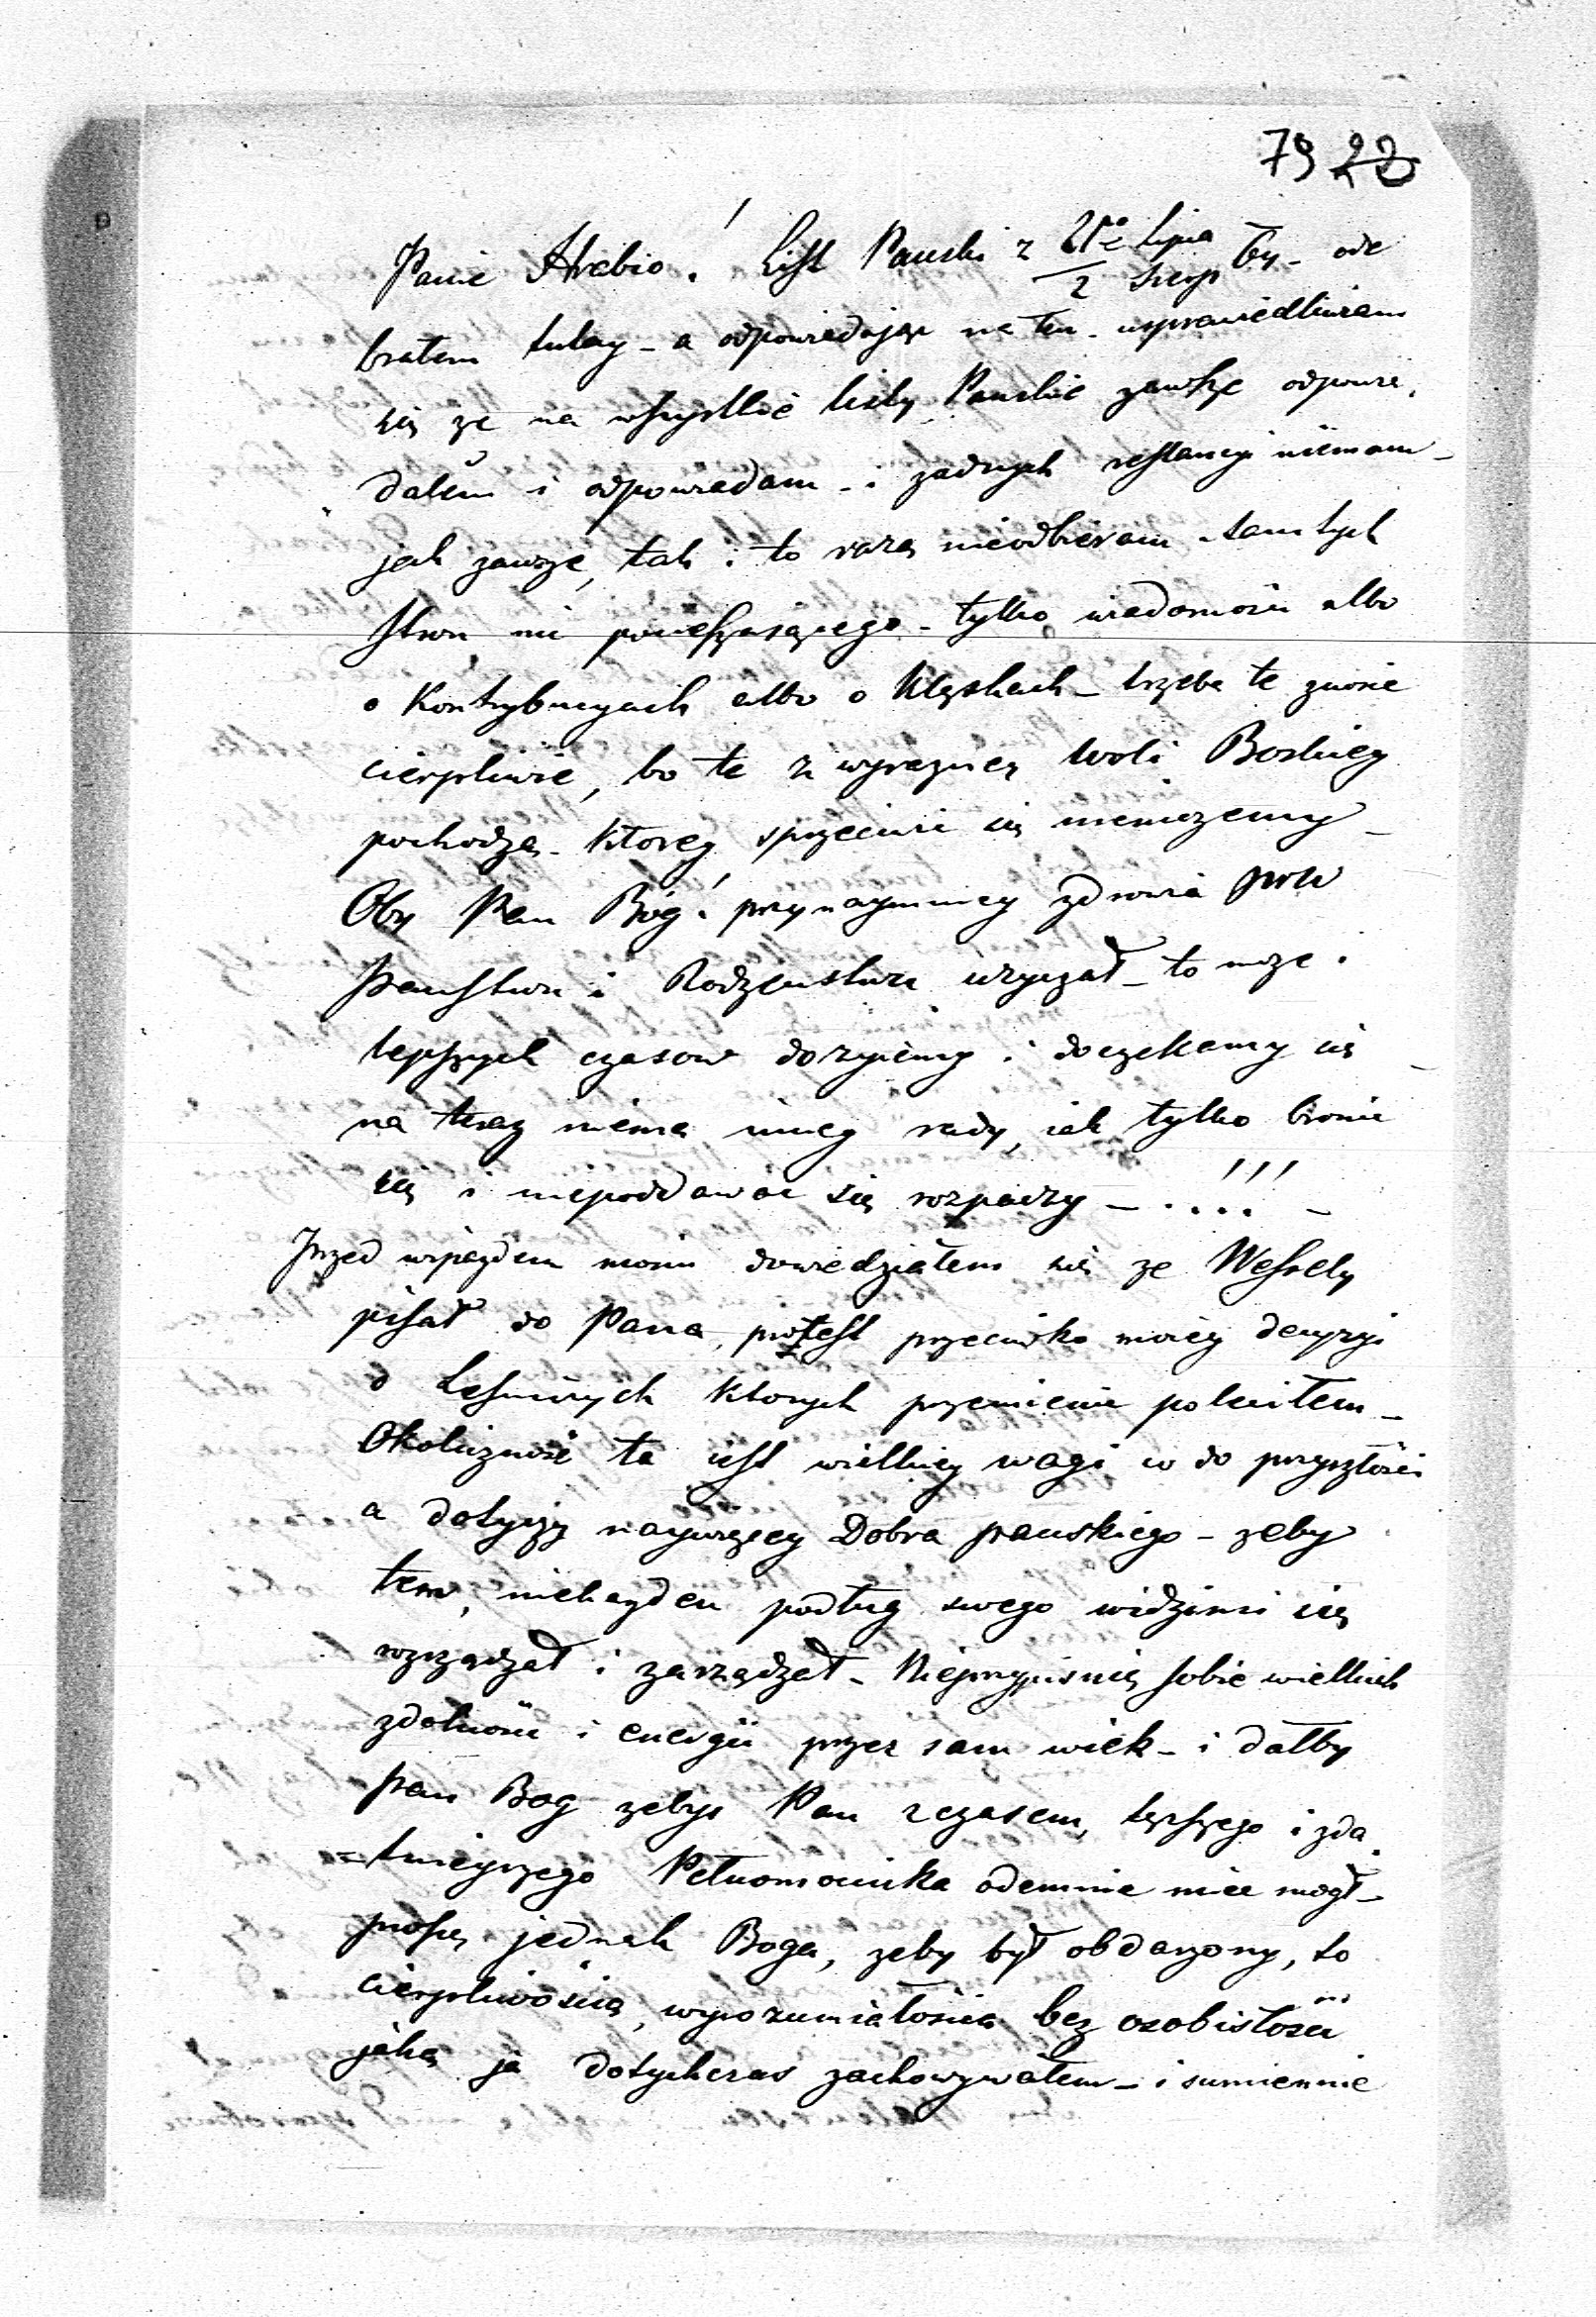 79 23
Panie Hrabio! List Pański z 21go Lipca / 2 Sierp by - ode
brałem tutay - a odpowiedaiąc na ten - usprawiedliwiam
się ze na wszystkie listy Panskie zawsze odpowie,
dałem i odpowiadam - i zadnych restancyi niemam -
jak zawsze, tak i to razą nieodbieram z tamtych
stron, nic pocieszaiącego - tylko wiadomości albo
o Kontrybucyach albo o Klęskach - trzeba te znosić
cierpliwie, bo te z wyrazney Woli Boskiey
pochodzą - ktorey sprzeciwić się niemozemy -
Oby Pan Bóg! przynaymniey zdrowia
Państwu i Rodzeństwu uzyczał - to moze i
lepszych czasow dozyiemy i doczekamy się -
na teraz niema inney rady, iak tylko bronić
się i niepoddawać się rozpaczy - . . !!! -
Przed wyiazdem moim dowiedziałem się ze Wessely
pisał do Pana, protest przeciwko moiey decyzyi
o Leśniczych ktorych przemienie poleciłem -
Okoliczność ta iest wielkiey wagi co do przyszłości
a dotyczy naywięcey Dobra pańskiego - zeby
tem, niekazden podług swego widzimi się
rozrządzał i zarządzał - Nieprzypisuię sobie wielkich
zdolności i energii przez sam wiek - i dałby
Pan Bog zebys Pan z czasem, lepszego i zda
=tnieyszego Pełnomocnika odemnie mieć mogł -
proszę jednak Boga, zeby był obdarzony, to
cierpliwością, wyrozumiałością bez osobistości
jaką ja dotychczas zachowywałem - i sumiennie